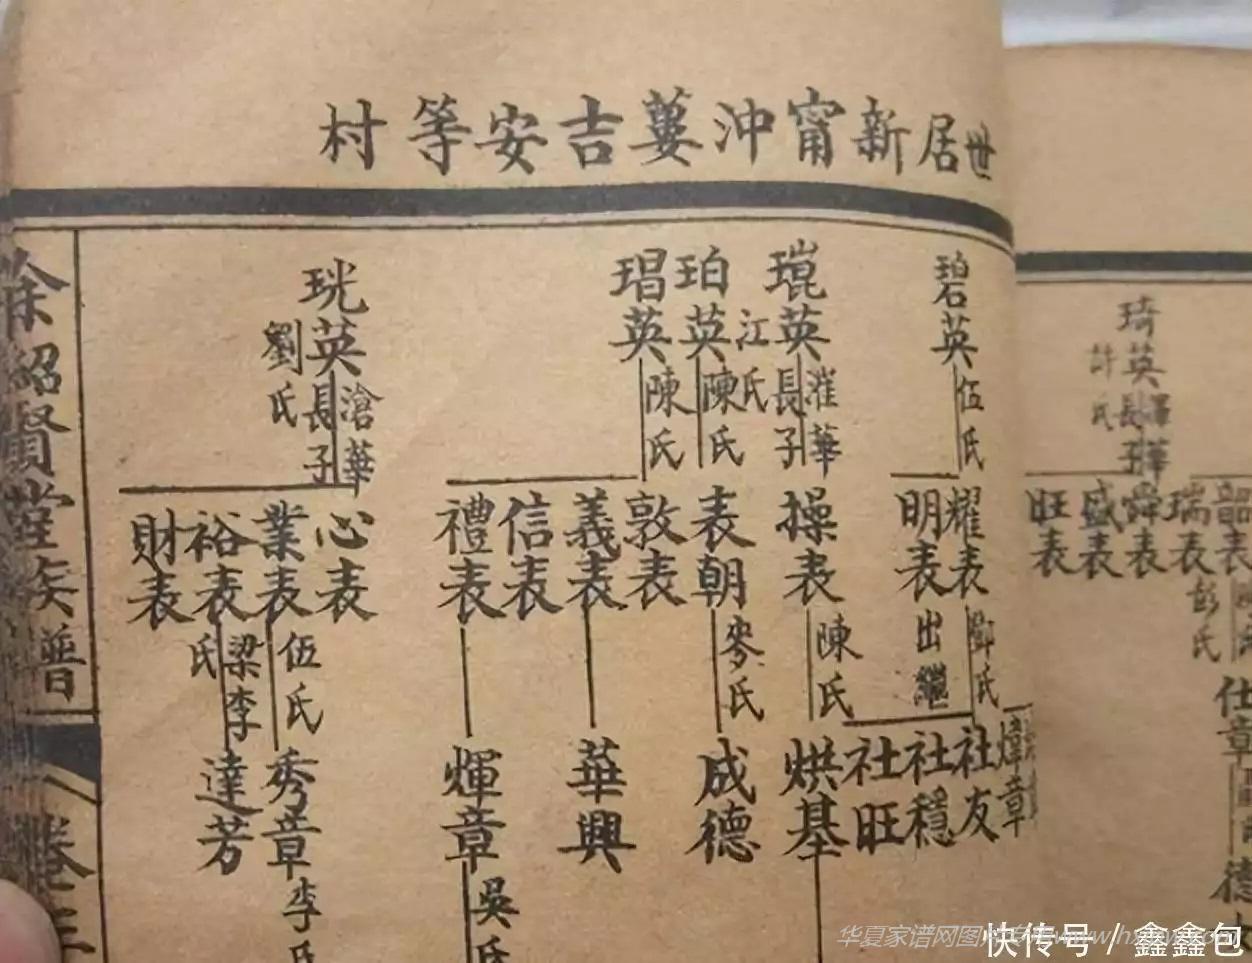 世居新甯沖蔞吉安等村
琦英
許氏
長子
旺表
盛表
舜表
瑞表
韶表
彭氏
仕章
德
碧英
伍氏
耀表
明表
出繼
鄧氏
煒章
社友
社穩
社旺
琨英
漼華
長子
江氏
操表
陳氏
烘基
珀英
陳氏
表朝
麥氏
成德
琩英
陳氏
敦表
義表
信表
禮表
華興
輝章
吳氏
珖英
滄華
長子
劉氏
心表
業表
裕表
財表
伍氏
梁李氏
秀章
達芳
李氏
余紹賢堂族譜
卷三
华夏家谱网图
快传号 / 鑫鑫包